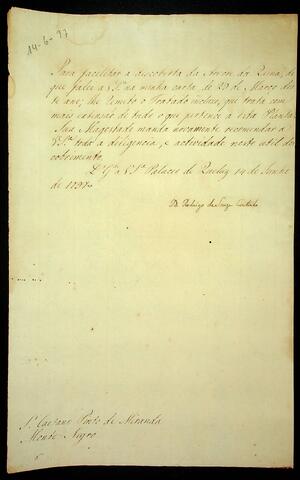 14-6-97
Para facilitar a descoberta da Arvore da Quina, de
que falei a V.Sª na minha carta de 29 de Março des
te anno, lhe remeto o Tratado incluso, que trata com
mais extensaõ de tudo o que pertence a esta Planta.
Sua Magestade manda novamente recomendar a
V.Sª toda a diligencia, e actividade neste util des
cobrimento.
D.ˢ G.ᵉ a V.Sª Palacio de Queluz 14 de Junho
de 1797
D. Rodrigo de Souza Coutinho
Sʳ Caetano Pinto de Miranda
Monte Negro